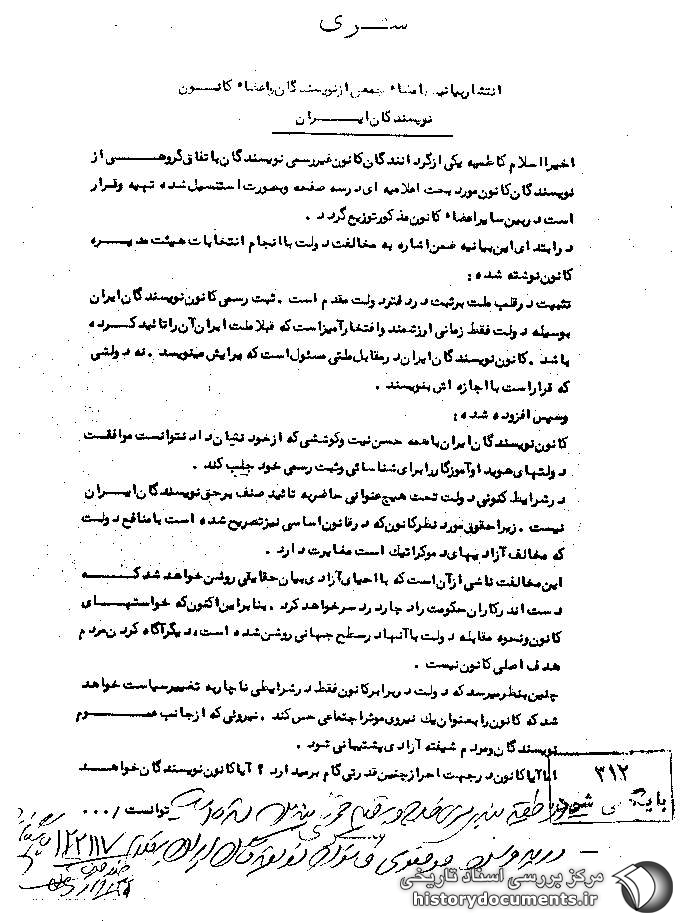 سری
انتشار بیانیه با مضاء جمعی از نویسندگان با عضاء کانون
نویسندگان ایران
اخیرا اسلام کاظمیه یکی از گردانندگان کانون غیررسمی نویسندگان با تفاق گروهی از
نویسندگان کانون مورد بحث اعلامیه ای در سه صفحه و بصورت استنسیل شده تهیه و قرار
است در بین سایر اعضاء کانون مذکور توزیع گردد .
در ابتدای این بیانیه ضمن اشاره به مخالفت دولت با انجام انتخابات هیئت مدیره
کانون نوشته شده :
تثبیت در قلب ملت بر ثبت در دفتر دولت مقدم است . ثبت رسمی کانون نویسندگان ایران
بوسیله دولت فقط زمانی ارزشمند و افتخار آمیز است که قبلا ملت ایران آن را تائید کرده
باشد . کانون نویسندگان ایران در مقابل ملتی مسئول است که برایش مینویسد . نه دولتی
که قرار است با اجازه اش بنویسند .
وسپس افزوده شده :
کانون نویسندگان ایران با همه حسن نیت و کوششی که از خود نشان داد نتوانست موافقت
دولتهای هویدا و آموزگار را برای شناسائی و ثبت رسمی خود جلب کند .
در شرایط کنونی دولت تحت هیچ عنوانی حاضر به تائید صنف بر حق نویسندگان ایران
نیست . زیرا حقوقی مورد نظر کانون که در قانون اساسی نیز تصریح شده است با منافع دولت
که مخالف آزادیهای دموکراتیك است مغایرت دارد .
این مخالفت ناشی از آن است که با احیای آزادی بیان حقایقی روشن خواهد شد که
دست اندرکاران حکومت را دچار دردسر خواهد کرد . بنابراین اکنون که خواستهای
کانون و نحوه مقابله دولت با آنها در سطح جهانی روشن شده است، دیگر آگاه کردن مردم
هدف اصلی کانون نیست .
چنین بنظر میرسد که دولت در برابر کانون فقط در شرایطی ناچار به تغییر سیاست خواهد
شد که کانون را بعنوان یك نیروی موثر اجتماعی حس کند . نیروئی که از جانب عموم
نویسندگان و مردم شیفته آزادی پشتیبانی شود .
اما آیا کانون در جهت احراز چنین قدرتی گام برمیدارد ؟ آیا کانون نویسندگان خواهد
توانست /...
۳۱۲
بایگانی شود
در پرونده
کانون نویسندگان ایران
۱۲۲۱۱۷
مرکز بررسی اسناد تاریخی
historydocuments.ir